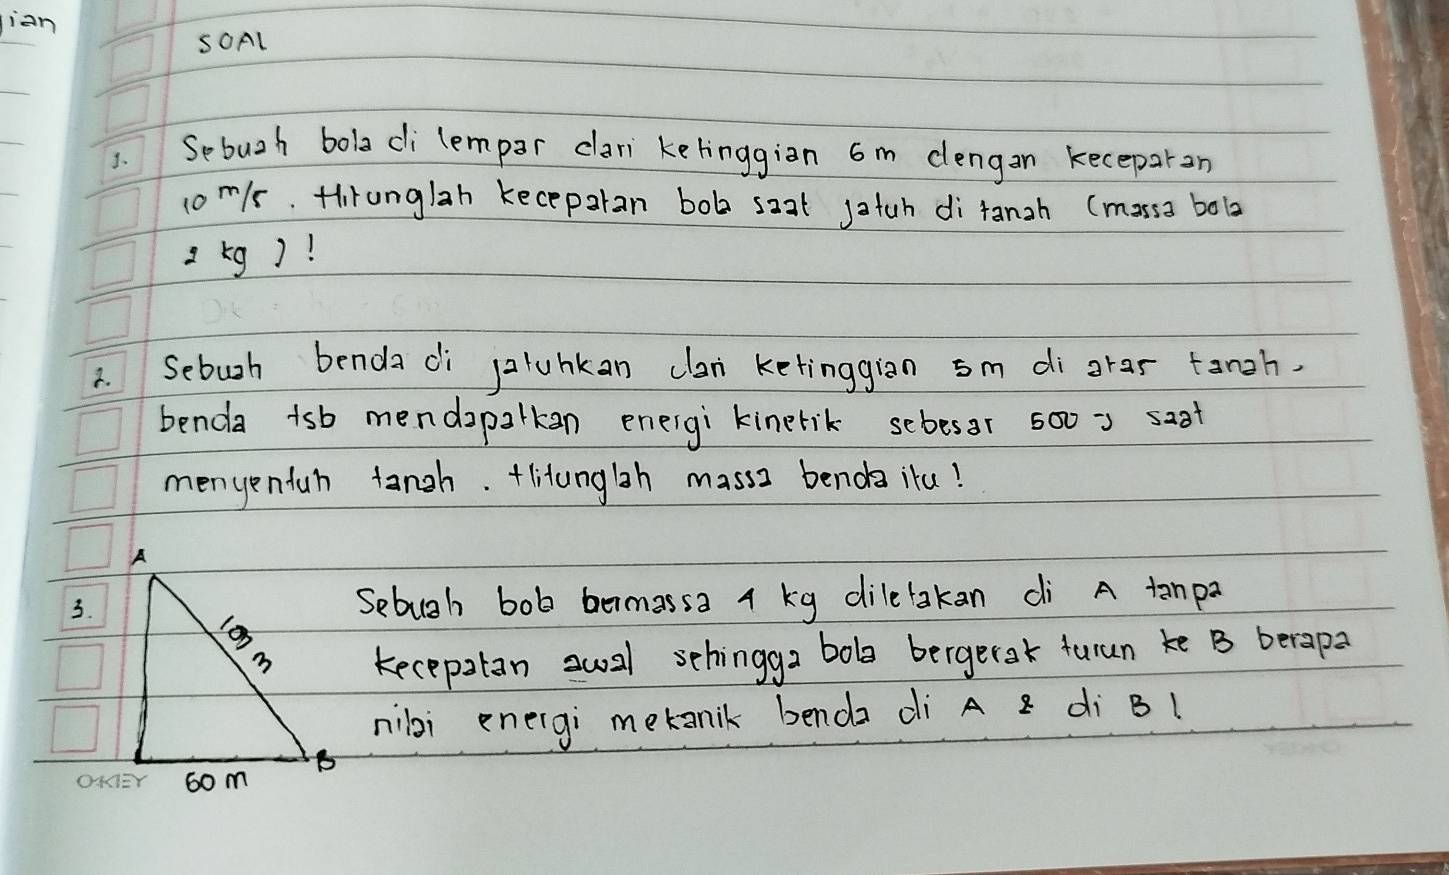 ian
SOAL
1. Sebuah bola di lempar dari ketinggian 6 m dengan kecepatan
10 m/s. Hitunglah kecepatan bola saat jatuh di tanah (massa bola
2 kg)!
2. Sebuah benda di jatuhkan dari ketinggian 5 m di atas tanah.
benda tsb mendapatkan energi kinetik sebesar 500 J saat
menyentuh tanah. Hitunglah massa benda itu!
A
3. Sebuah bola bermassa 4 kg diletakan di A tanpa
100 m
kecepatan awal sehingga bola bergerak turun ke B berapa
nilai energi mekanik benda di A & di B!
B
OKEY 60 m